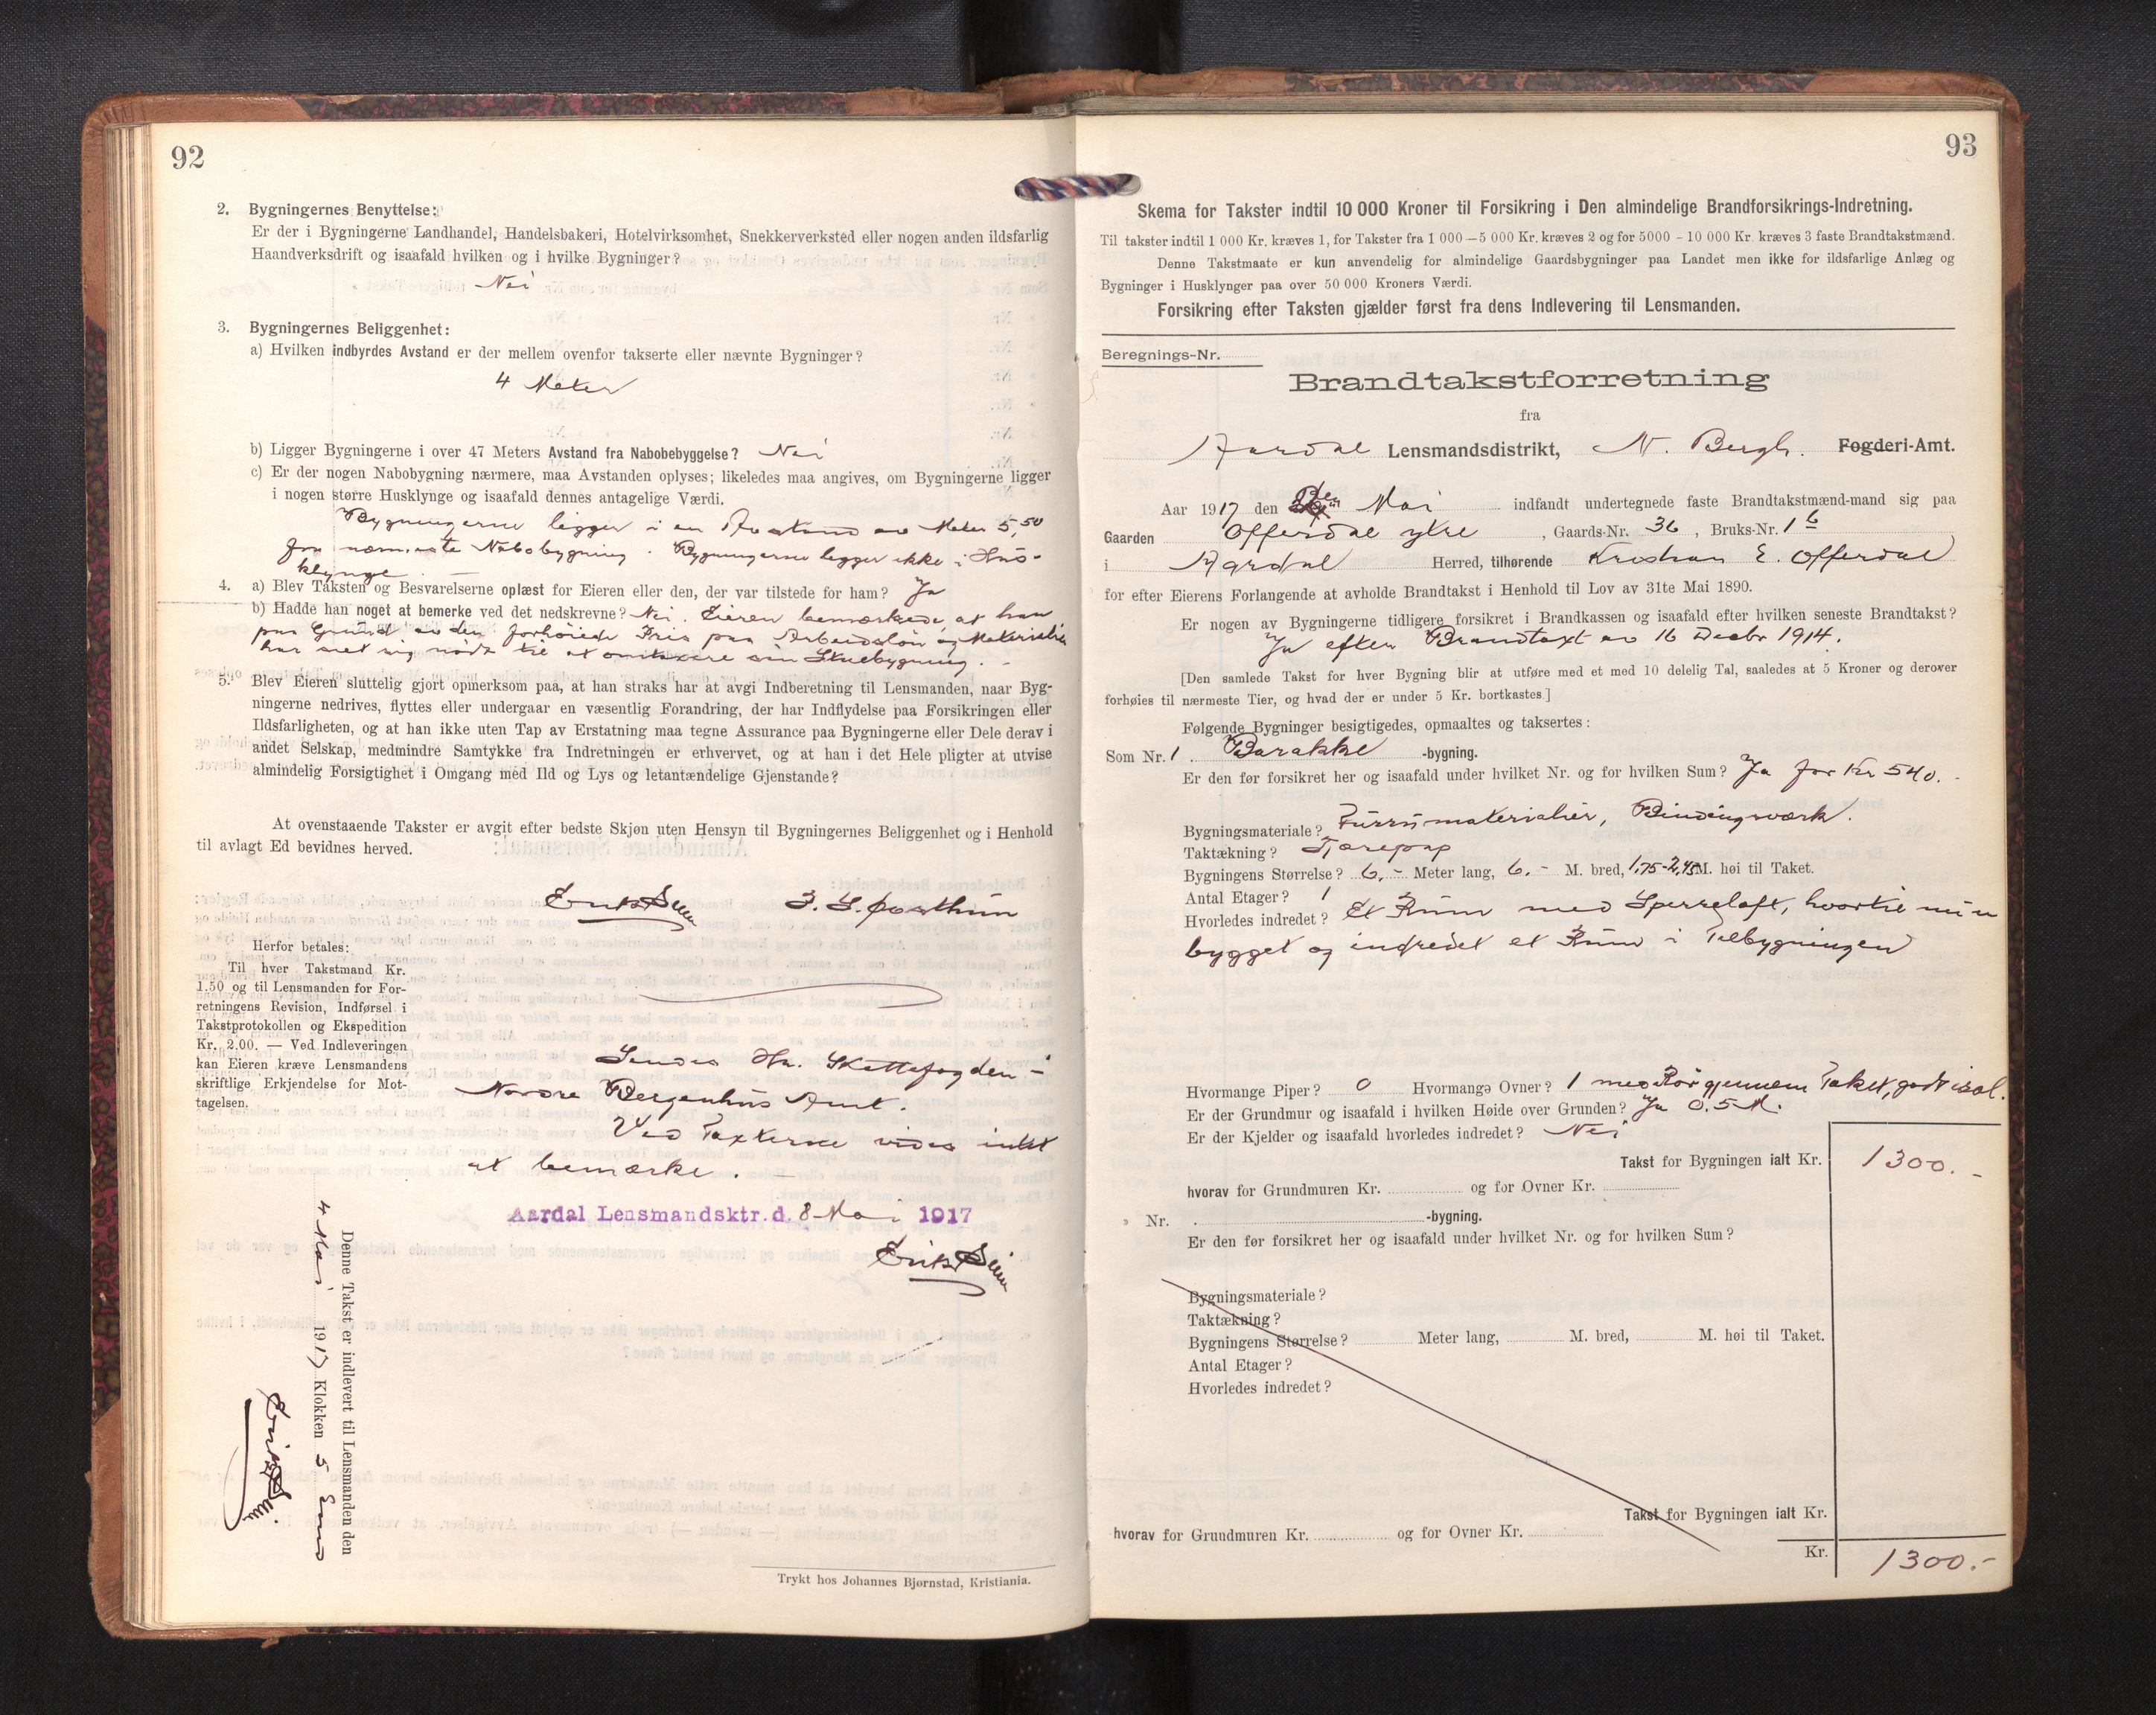 92
2. Bygningernes Benyttelse:
Er der i Bygningerne Landhandel, Handelsbakeri, Hotelvirksomhet, Snekkerverksted eller nogen anden ildsfarlig
Haandverksdrift og isaafald hvilken og i hvilke Bygninger?
Nei
3. Bygningernes Beliggenhet:
a) Hvilken indbyrdes Avstand er der mellem ovenfor takserte eller nævnte Bygninger?
4 Meter
b) Ligger Bygningerne i over 47 Meters Avstand fra Nabobebyggelse? Nei
c) Er der nogen Nabobygning nærmere, maa Avstanden oplyses; likeledes maa angives, om Bygningerne ligger
i nogen større Husklynge og isaafald dennes antagelige Værdi.
Bygningerne ligger i en Avstand av Meter 5,50
fra nærmeste Nabobygning. Bygningerne ligger ikke i Hus-
klynge.
4. a) Blev Taksten og Besvarelserne oplæst for Eieren eller den, der var tilstede for ham? Ja
b) Hadde han noget at bemerke ved det nedskrevne? Nei. Eieren bemærkede, at han
paa Grund av den forhøiede Pris paa Arbeidsløn og Materialier
har set sig nødt til at omtaxere sin Stuebygning. -
5. Blev Eieren sluttelig gjort opmerksom paa, at han straks har at avgi Indberetning til Lensmanden, naar Byg-
ningerne nedrives, flyttes eller undergaar en væsentlig Forandring, der har Indflydelse paa Forsikringen eller
Ildsfarligheten, og at han ikke uten Tap av Erstatning maa tegne Assurance paa Bygningerne eller Dele derav i
andet Selskap, medmindre Samtykke fra Indretningen er erhvervet, og at han i det Hele pligter at utvise
almindelig Forsigtighet i Omgang med Ild og Lys og letantændelige Gjenstande?
At ovenstaaende Takster er avgit efter bedste Skjøn uten Hensyn til Bygningernes Beliggenhet og i Henhold
til avlagt Ed bevidnes herved.
Herfor betales:
Til hver Takstmand Kr.
1.50 og til Lensmanden for For-
retningens Revision, Indførsel i
Takstprotokollen og Ekspedition
Kr. 2.00. — Ved Indleveringen
kan Eieren kræve Lensmandens
skriftlige Erkjendelse for Mot-
tagelsen.
Sendes Hr. Skattefogden i
Nordre Bergenhus Amt.
Ved Taxterne vides intet
at bemærke. -
Aardal Lensmandsktr. d. 8 Mai 1917
Denne Takst er indlevert til Lensmanden den
4 Mai 1917 Klokken 5 Emd
Trykt hos Johannes Bjørnstad, Kristiania.
93
Skema for Takster indtil 10 000 Kroner til Forsikring i Den almindelige Brandforsikrings-Indretning.
Til takster indtil 1 000 Kr. kræves 1, for Takster fra 1 000 — 5 000 Kr. kræves 2 og for 5000 - 10 000 Kr. kræves 3 faste Brandtakstmænd.
Denne Takstmaate er kun anvendelig for almindelige Gaardsbygninger paa Landet men ikke for ildsfarlige Anlæg og
Bygninger i Husklynger paa over 50 000 Kroners Værdi.
Forsikring efter Taksten gjælder først fra dens Indlevering til Lensmanden.
Beregnings-Nr.
Brandtakstforretning
fra
Aardal Lensmandsdistrikt, N. Bergh. Fogderi-Amt.
Aar 1917 den Mai indfandt undertegnede faste Brandtakstmænd-mand sig paa
Gaarden Offerdal ytre, Gaards-Nr. 36, Bruks-Nr. 16
i Aardal Herred, tilhørende Kristian E. Offerdal
for efter Eierens Forlangende at avholde Brandtakst i Henhold til Lov av 31te Mai 1890.
Er nogen av Bygningerne tidligere forsikret i Brandkassen og isaafald efter hvilken seneste Brandtakst?
Ja efter Brandtaxt av 16 Decbr 1914.
[Den samlede Takst for hver Bygning blir at utføre med et med 10 delelig Tal, saaledes at 5 Kroner og derover
forhøies til nærmeste Tier, og hvad der er under 5 Kr. bortkastes.]
Følgende Bygninger besigtigedes, opmaaltes og taksertes:
Som Nr. 1. Barakke -bygning.
Er den før forsikret her og isaafald under hvilket Nr. og for hvilken Sum? Ja for Kr 540. -
Bygningsmateriale? Furrumaterialier, Bindingsværk.
Taktækning? Tjærepap
Bygningens Størrelse? 6,- Meter lang, 6.- M. bred, 1,75-2,45 M. høi til Taket.
Antal Etager? 1
Hvorledes indredet? Et Rum med Sperreloft, hvortil nu er
bygget og indredet et Rum i Tilbygningen
Hvormange Piper? 0 Hvormange Ovner? 1 med Rør gjennem Taket, godt isol.
Er der Grundmur og isaafald i hvilken Høide over Grunden? Ja 0.5 M.
Er der Kjelder og isaafald hvorledes indredet? Nei
Takst for Bygningen ialt Kr. 1300.-
hvorav for Grundmuren Kr. og for Ovner Kr.
» Nr. . -bygning.
Er den før forsikret her og isaafald under hvilket Nr. og for hvilken Sum?
Bygningsmateriale?
Taktækning?
Bygningens Størrelse? Meter lang, M. bred, M. høi til Taket.
Antal Etager?
Hvorledes indredet?
Takst for Bygningen ialt Kr.
hvorav for Grundmuren Kr. og for Ovner Kr.
Kr. 1300.-